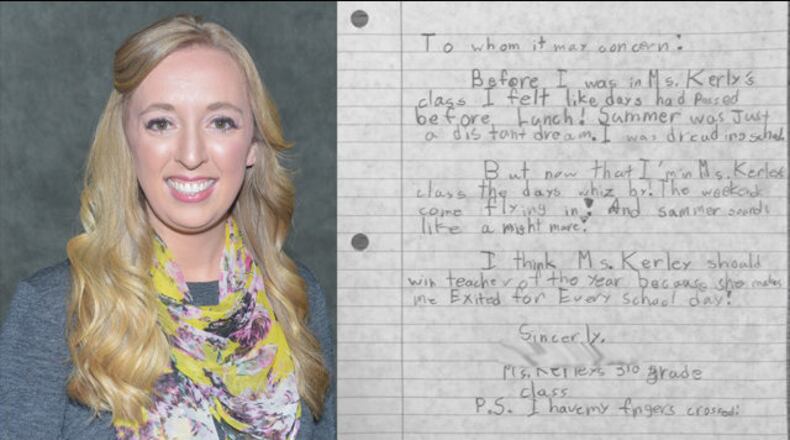 To whom it may concern:
Before I was in Ms. Kerly's
class I felt like days had Passed
before Lunch! Summer was Just
a distant dream. I was dreading school.
But now that I'm in Ms. Kerley
class the days whiz by! The weekends
come flying in! And summer sounds
like a might more!
I think Ms. Kerley should
win teacher of the year because she makes
me Exited for Every school day!
Sincerly,
Ms. Kerleys 3rd grade
class
P.S. I have my fingers crossed!